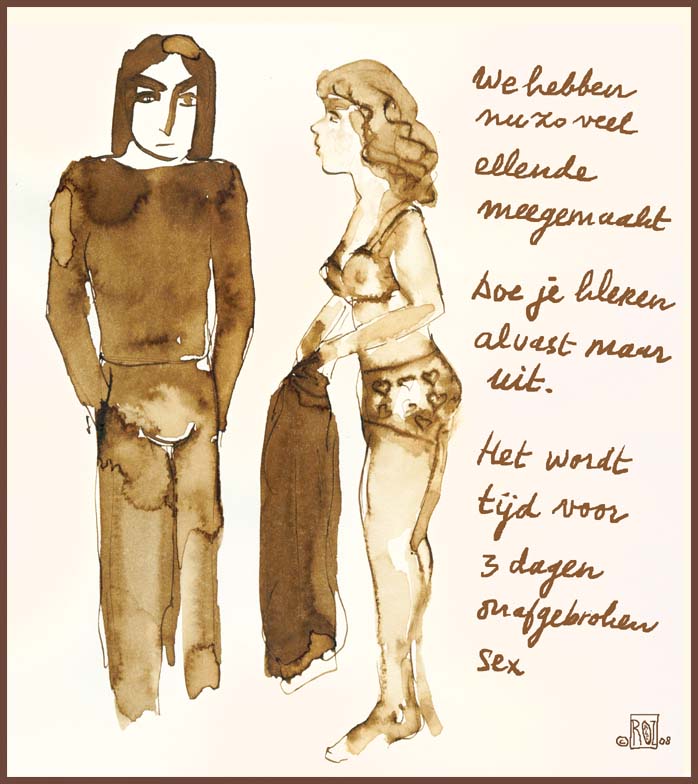 We hebben
nu zo veel
ellende
meegemaakt
Doe je kleren
alvast maar
uit.
Het wordt
tijd voor
3 dagen
onafgebroken
sex
© ROZ 08